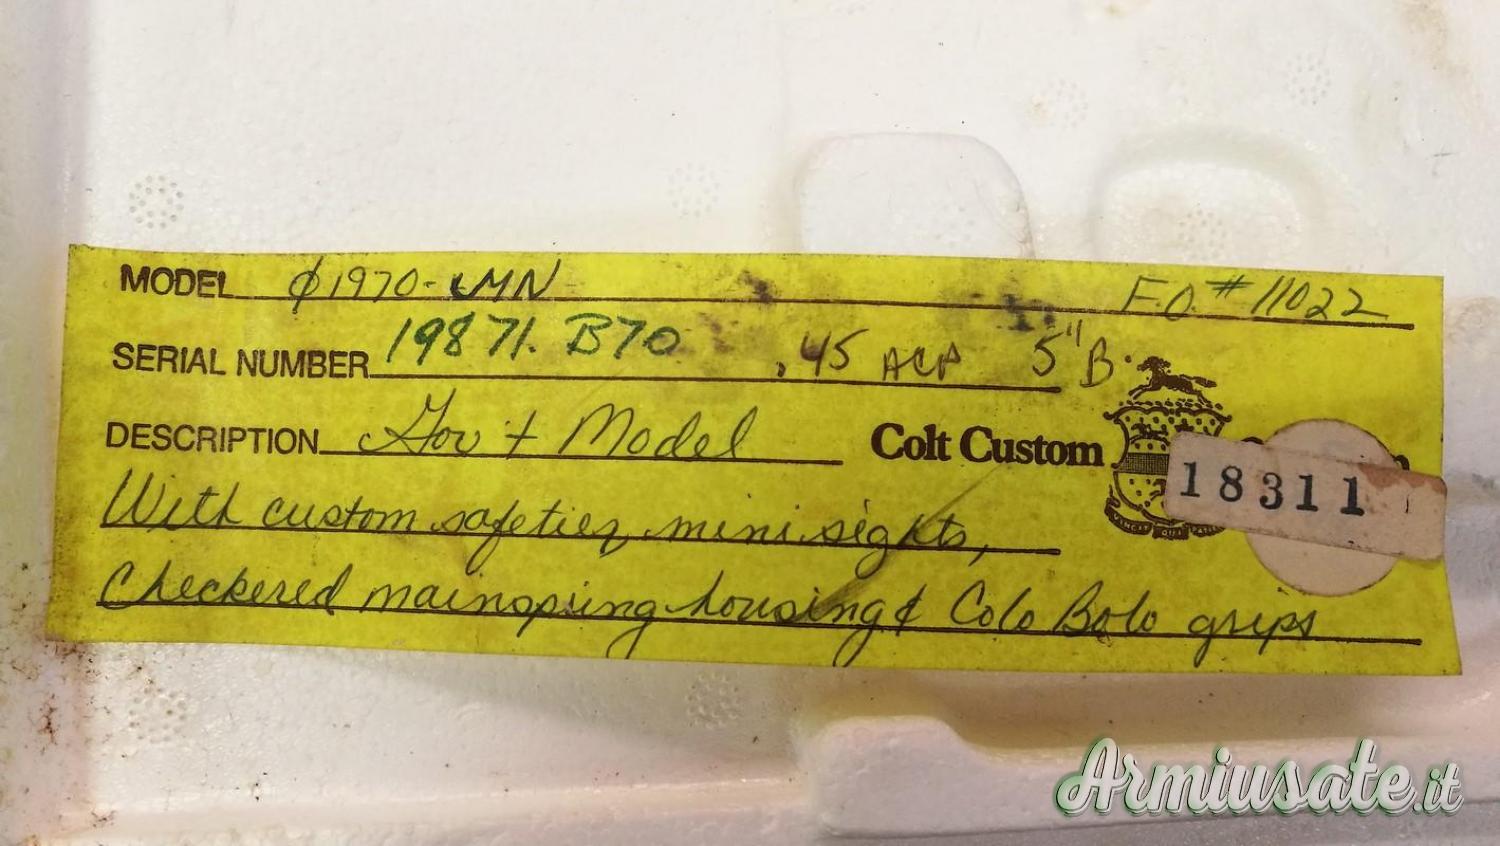 MODEL ϕ1970-LMN F.O.# 11022
SERIAL NUMBER 19871.B70 .45 ACP 5" B.
DESCRIPTION Gov't Model Colt Custom
With custom safeties, mini sights,
Checkered mainspring housing & Colo Bolo grips
18311
Armiusate.it